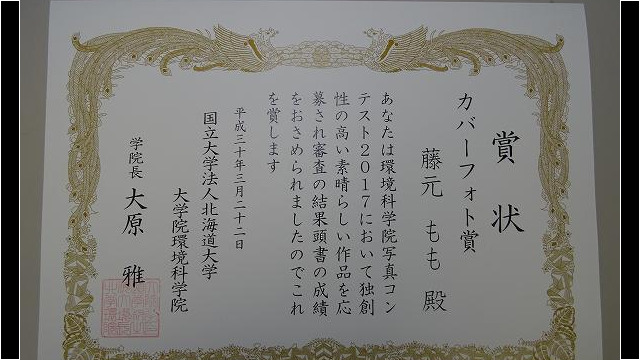 賞状
カバーフォト賞
藤元 もも 殿
あなたは環境科学院写真コン
テスト2017において独創
性の高い素晴らしい作品を応
募され審査の結果頭書の成績
をおさめられましたのでこれ
を賞します
平成三十年三月二十二日
国立大学法人北海道大学
大学院環境科学院
学院長 大原 雅